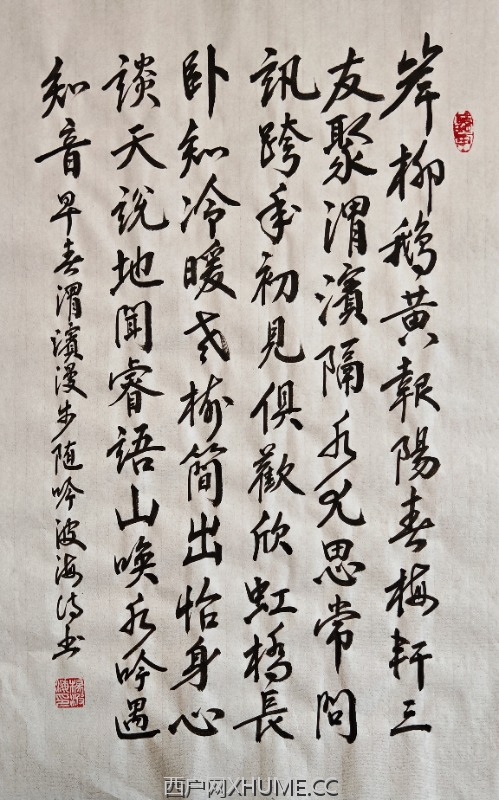 岸柳鹅黄報陽春梅軒三
友聚渭濱隔水尤思常問
訊跨年初見俱歡欣虹橋長
卧知冷暖老簡出怡身心
談天説地聞睿語山唤水吟遇
知音早春渭濱漫步随吟波海诗书
西户网XHUME.CC